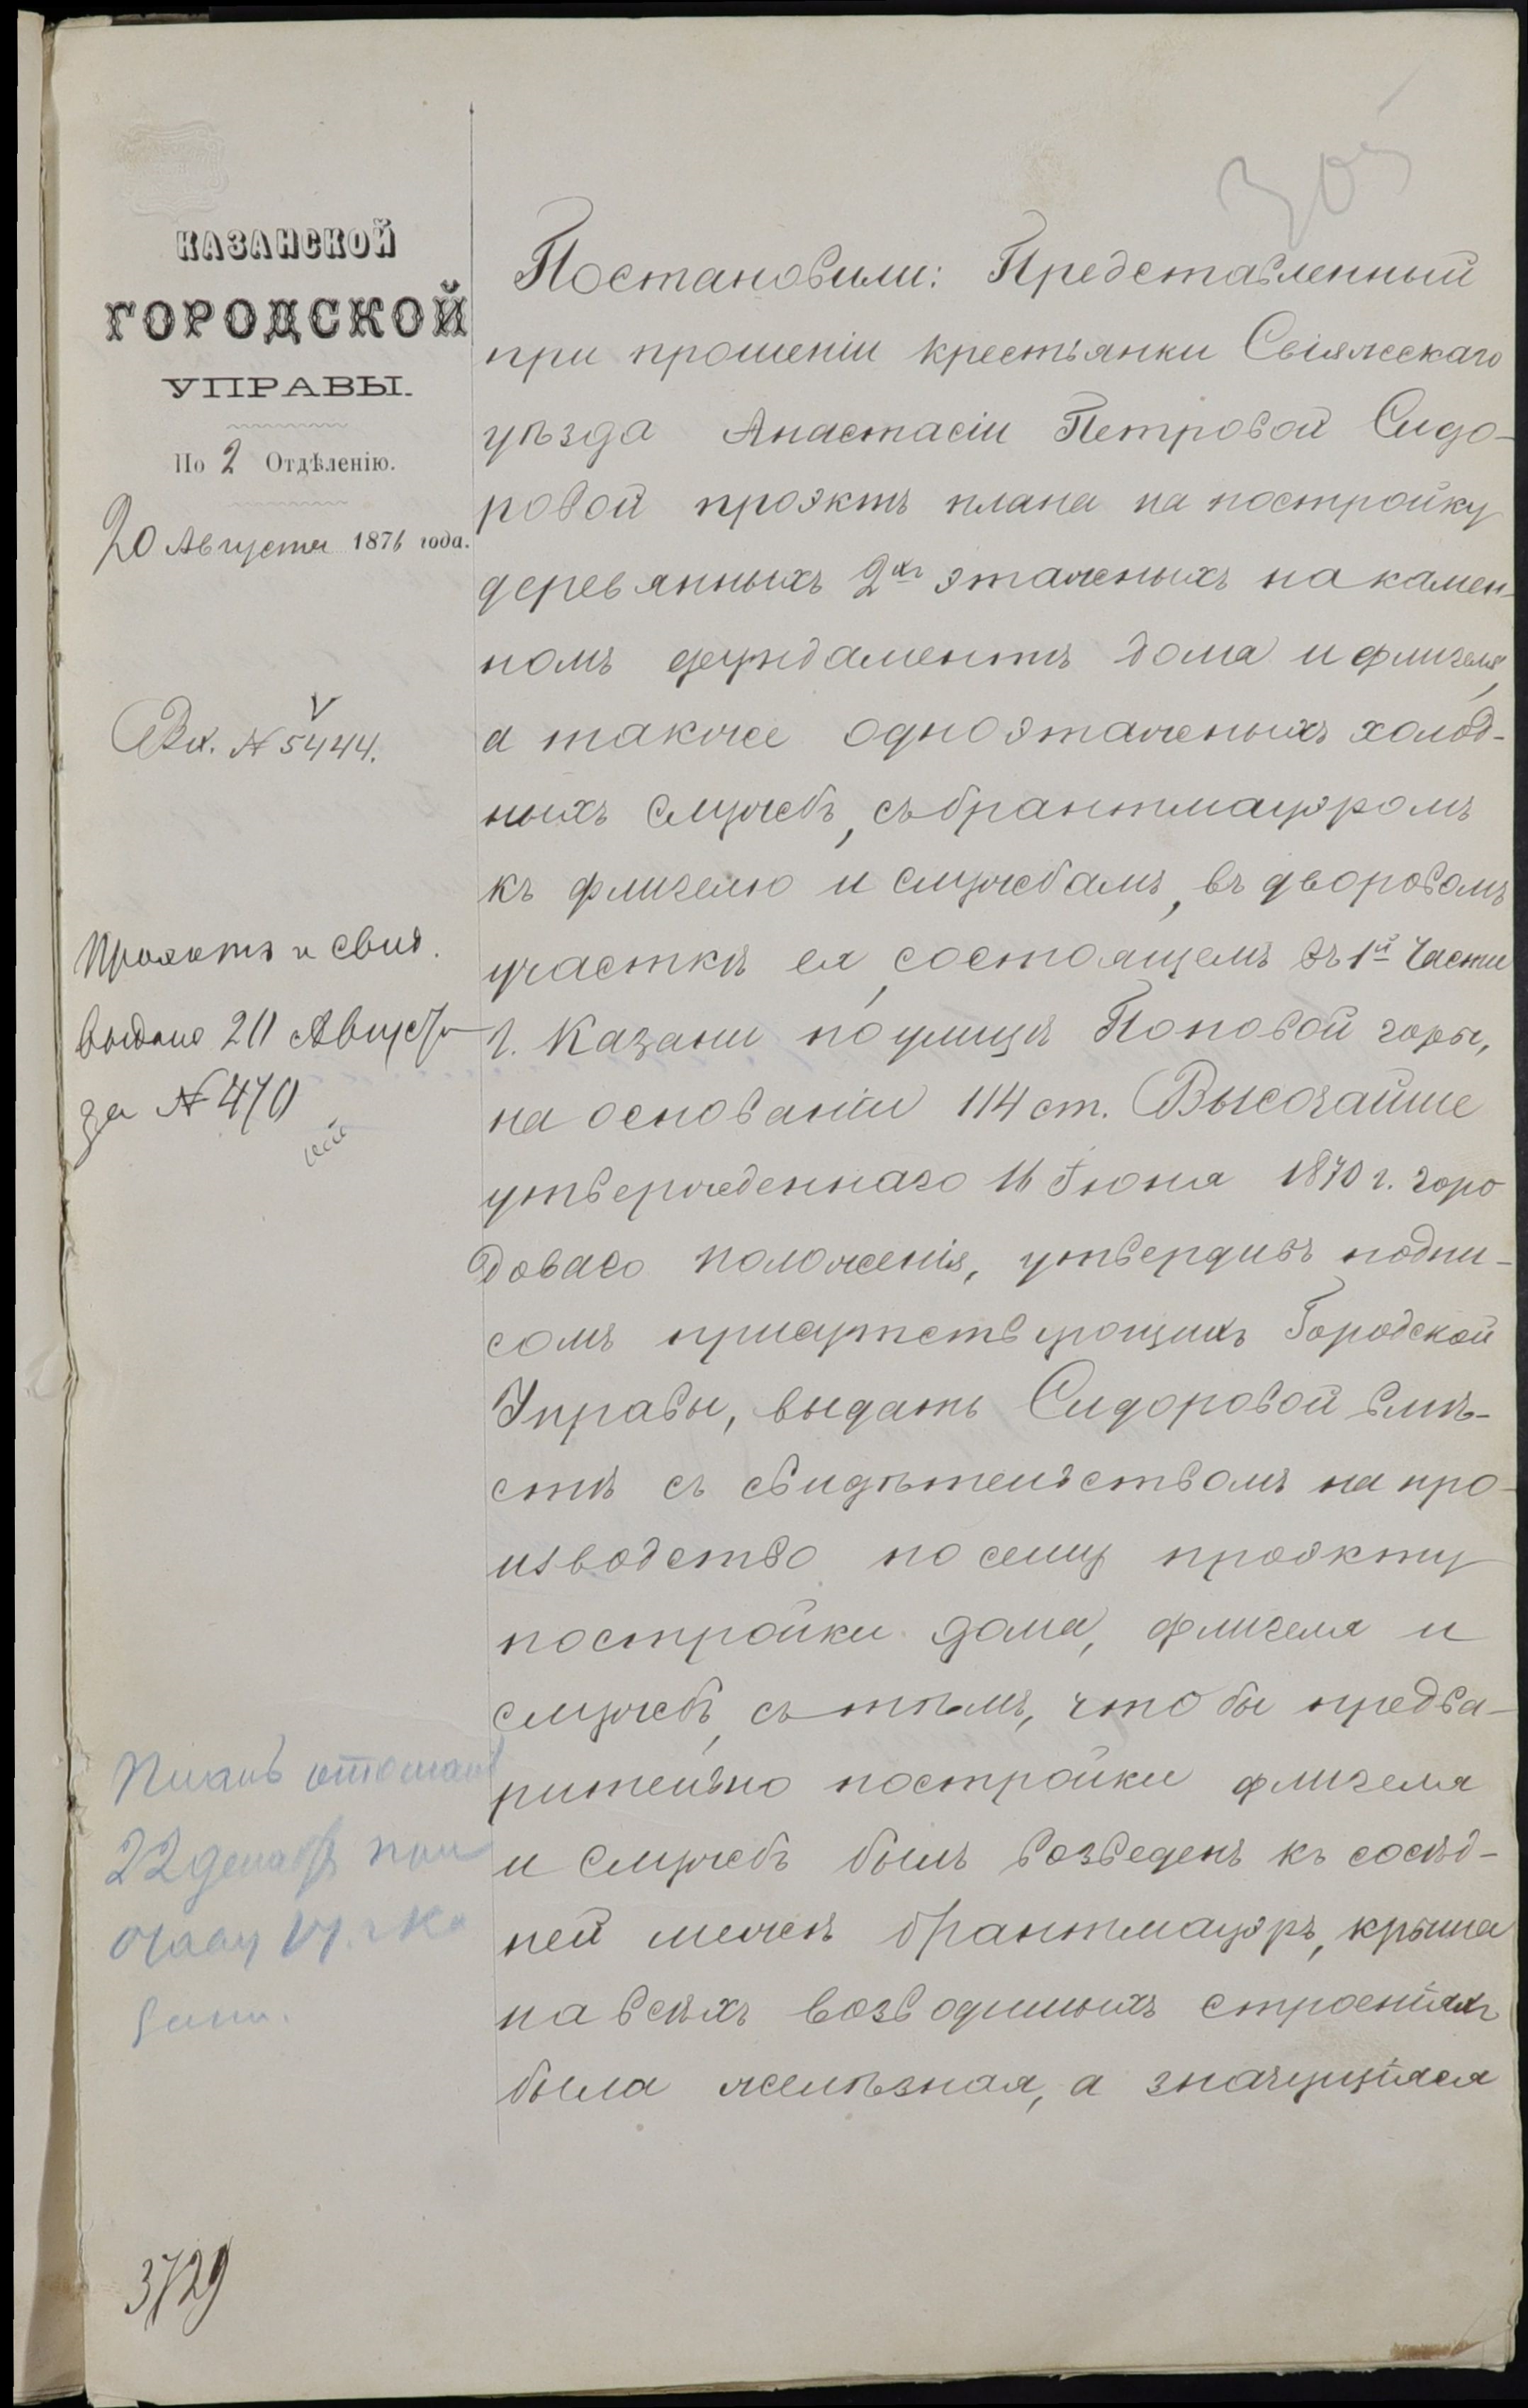 305
КАЗАНСКОЙ
ГОРОДСКОЙ
УПРАВЫ.
По 2 Отдѣленію.
20 Августа 1876 года.
Вх. № 5444.
Проэктъ и свид.
выданo 20 Августа
за № 470
Планъ
22 декабр при
3729
Постановили: Представленный
при прошеніи крестьянки Свіяжскаго
уѣзда Анастасіи Петровой Сидо-
ровой проэктъ плана на постройку
деревянныхъ 2хъ этажныхъ на камен-
номъ фундаментѣ дома и флигеля,
а также одноэтажныхъ холод-
ныхъ службъ, съ брантмауэромъ
къ флигелю и службамъ, въ дворовомъ
участкѣ ея, состоящемъ въ 1й части
г. Казани по улицѣ Поповой горы,
на основаніи 114 ст. Высочайше
утвержденнаго 16 Іюня 1870 г. горо
доваго положенія, утвердивъ подпи-
сомъ присутствующихъ Городской
Управы, выдать Сидоровой вмѣ-
стѣ съ свидѣтельствомъ на про-
изводство по сему проэкту
постройки дома, флигеля и
службъ, съ тѣмъ, чтобы предва-
рительно постройки флигеля
и службъ былъ возведенъ къ сосѣд-
ней межѣ брантмауэръ, крыша
на всѣхъ возводимыхъ строеніяхъ
была желѣзная, а значущіяся